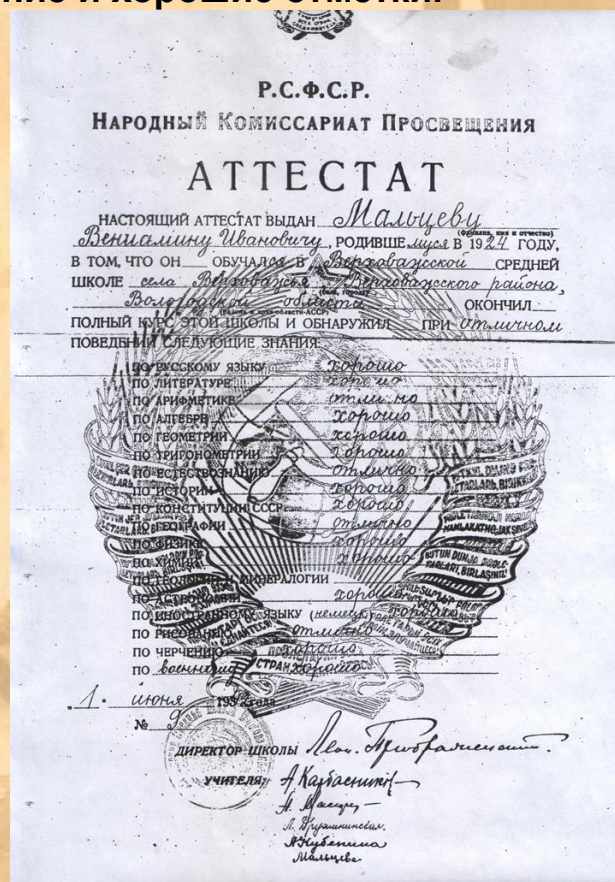 ние я хорошие отметки.
Р.С.Ф.С.Р.
НАРОДНЫЙ КОМИССАРИАТ ПРОСВЕЩЕНИЯ
АТТЕСТАТ
НАСТОЯЩИЙ АТТЕСТАТ ВЫДАН Мальцеву
(фамилия, имя и отчество)
Вениамину Ивановичу, РОДИВШЕмуся В 1924 ГОДУ,
В ТОМ, ЧТО ОН ОБУЧАЛСЯ В Верховажской СРЕДНЕЙ
ШКОЛЕ села Верховажья Верховажского района,
Вологодской области ОКОНЧИЛ
ПОЛНЫЙ КУРС ЭТОЙ ШКОЛЫ И ОБНАРУЖИЛ ПРИ отличном
ПОВЕДЕНИИ СЛЕДУЮЩИЕ ЗНАНИЯ:
ПО РУССКОМУ ЯЗЫКУ хорошо
ПО ЛИТЕРАТУРЕ хорошо
ПО АРИФМЕТИКЕ отлично
ПО АЛГЕБРЕ хорошо
ПО ГЕОМЕТРИИ хорошо
ПО ТРИГОНОМЕТРИИ хорошо
ПО ЕСТЕСТВОЗНАНИЮ отлично
ПО ИСТОРИИ хорошо
ПО КОНСТИТУЦИИ СССР хорошо
ПО ГЕОГРАФИИ отлично
ПО ФИЗИКЕ хорошо
ПО ХИМИИ хорошо
ПО ГЕОЛОГИИ И МИНЕРАЛОГИИ
ПО АСТРОНОМИИ хорошо
ПО ИНОСТРАННОМУ ЯЗЫКУ (немецк) хорошо
ПО РИСОВАНИЮ отлично
ПО ЧЕРЧЕНИЮ хорошо
ПО хорошо
"1" июня года
№ 9
ДИРЕКТОР ШКОЛЫ
УЧИТЕЛЯ:
Мальцева